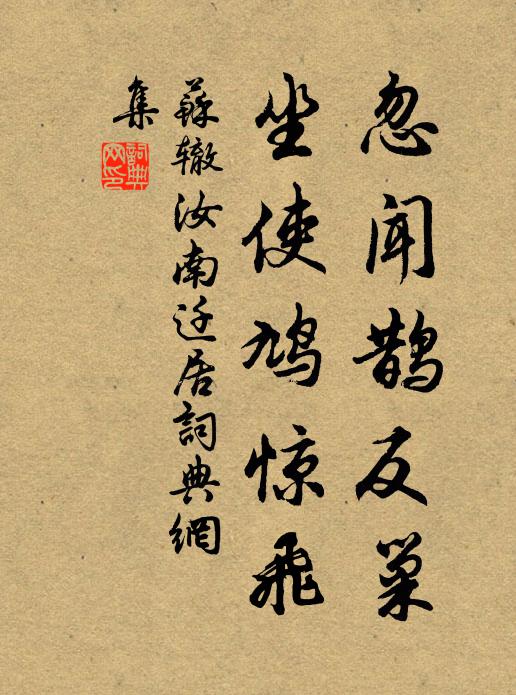 忽闻鹊反巢
坐使鸠惊飞
蘇辙汝南迁居詞典網
集
詞典网印